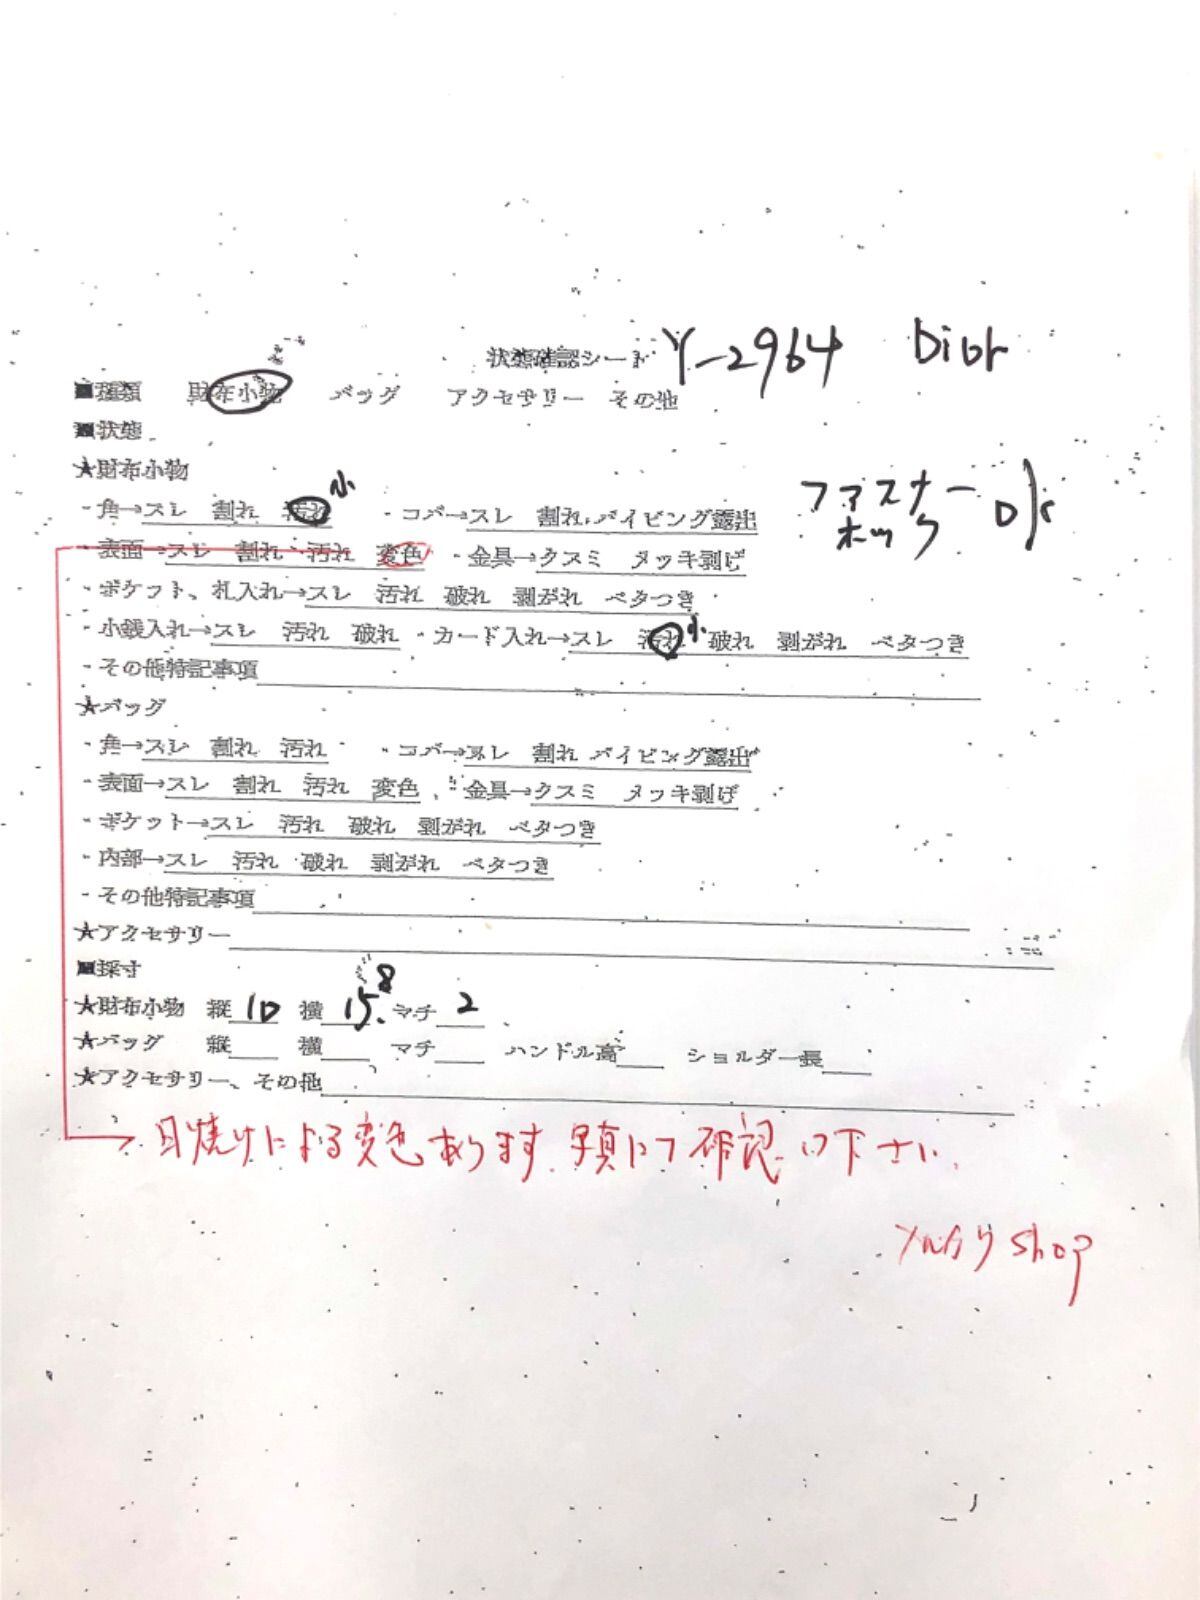 状態確認シート Y-2964 Dior
■種類 財布小物 バッグ アクセサリー その他
■状態
★財布小物
・角→スレ 割れ 汚れ 小 ・コバ→スレ 割れ パイピング露出
ファスナー
ホック
・表面→スレ 割れ 汚れ 変色 ・金具→クスミ メッキ剥げ
・ポケット、札入れ→スレ 汚れ 破れ 剥がれ ベタつき
・小銭入れ→スレ 汚れ 破れ ・カード入れ→スレ 汚れ 小 破れ 剥がれ ベタつき
・その他特記事項
★バッグ
・角→スレ 割れ 汚れ ・コバ→スレ 割れ パイピング露出
・表面→スレ 割れ 汚れ 変色 ・金具→クスミ メッキ剥げ
・ポケット→スレ 汚れ 破れ 剥がれ ベタつき
・内部→スレ 汚れ 破れ 剥がれ ベタつき
・その他特記事項
★アクセサリー
■採寸
★財布小物 縦 10 横 15.8 マチ 2
★バッグ 縦 横 マチ ハンドル高 ショルダー長
★アクセサリー、その他
→日焼けによる変色あります。写真にて確認し下さい。
メルカリshop